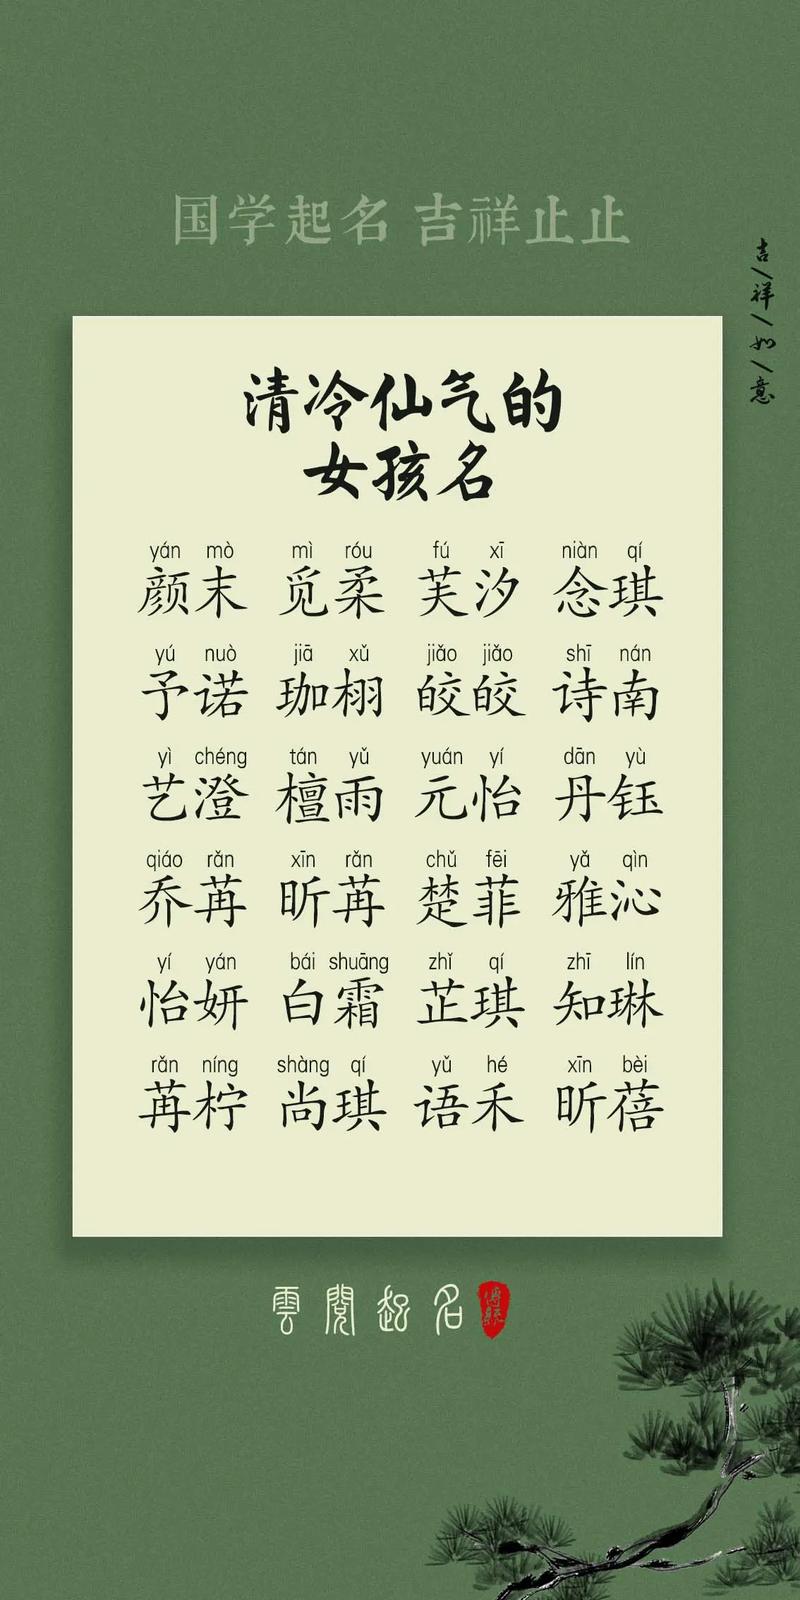 国学起名 吉祥止止
吉祥如意
清冷仙气的
女孩名
yán mò mì róu fú xī niàn qí
颜末 觅柔 芙汐 念琪
yú nuò jiā xǔ jiǎo jiǎo shī nán
予诺 珈栩 皎皎 诗南
yì chéng tán yǔ yuán yí dān yù
艺澄 檀雨 元怡 丹钰
qiáo rǎn xīn rǎn chǔ fēi yǎ qìn
乔苒 昕苒 楚菲 雅沁
yí yán bái shuāng zhǐ qí zhī lín
怡妍 白霜 芷琪 知琳
rǎn níng shàng qí yǔ hé xīn bèi
苒柠 尚琪 语禾 昕蓓
雲閣起名
傳統